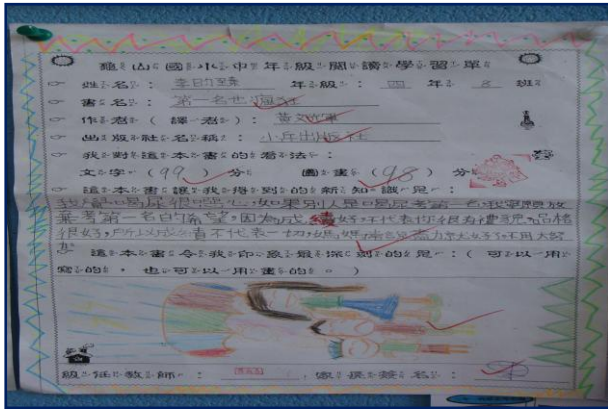 龜山國小中年級閱讀學習單
姓名： 年級：四年8班
書名：第一名也瘋狂
作者（譯者）：黃文軍
出版社名稱：小兵出版社
我對這本書的看法：
文字（99）分 圖畫（98）分
這本書讓我得到的新知識是：
我覺得 尿很噁心，如果別人是喝尿考第一名我寧願放
棄考第一名的 ，因為成績好不代表你很有禮貌，品格
很好，所以成績不代表一切，媽媽 盡力 好了不用太努
力。
這本書令我印象最深刻的是：（可以用
寫的，也可以用畫的。）
級任教師： 家長簽名：